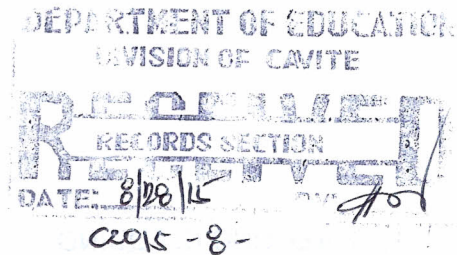 DEPARTMENT OF EDUCATION
DIVISION OF CAVITE
RECEIVED
RECORDS SECTION
DATE: 8/28/15 BY:
C2015 - 8 -